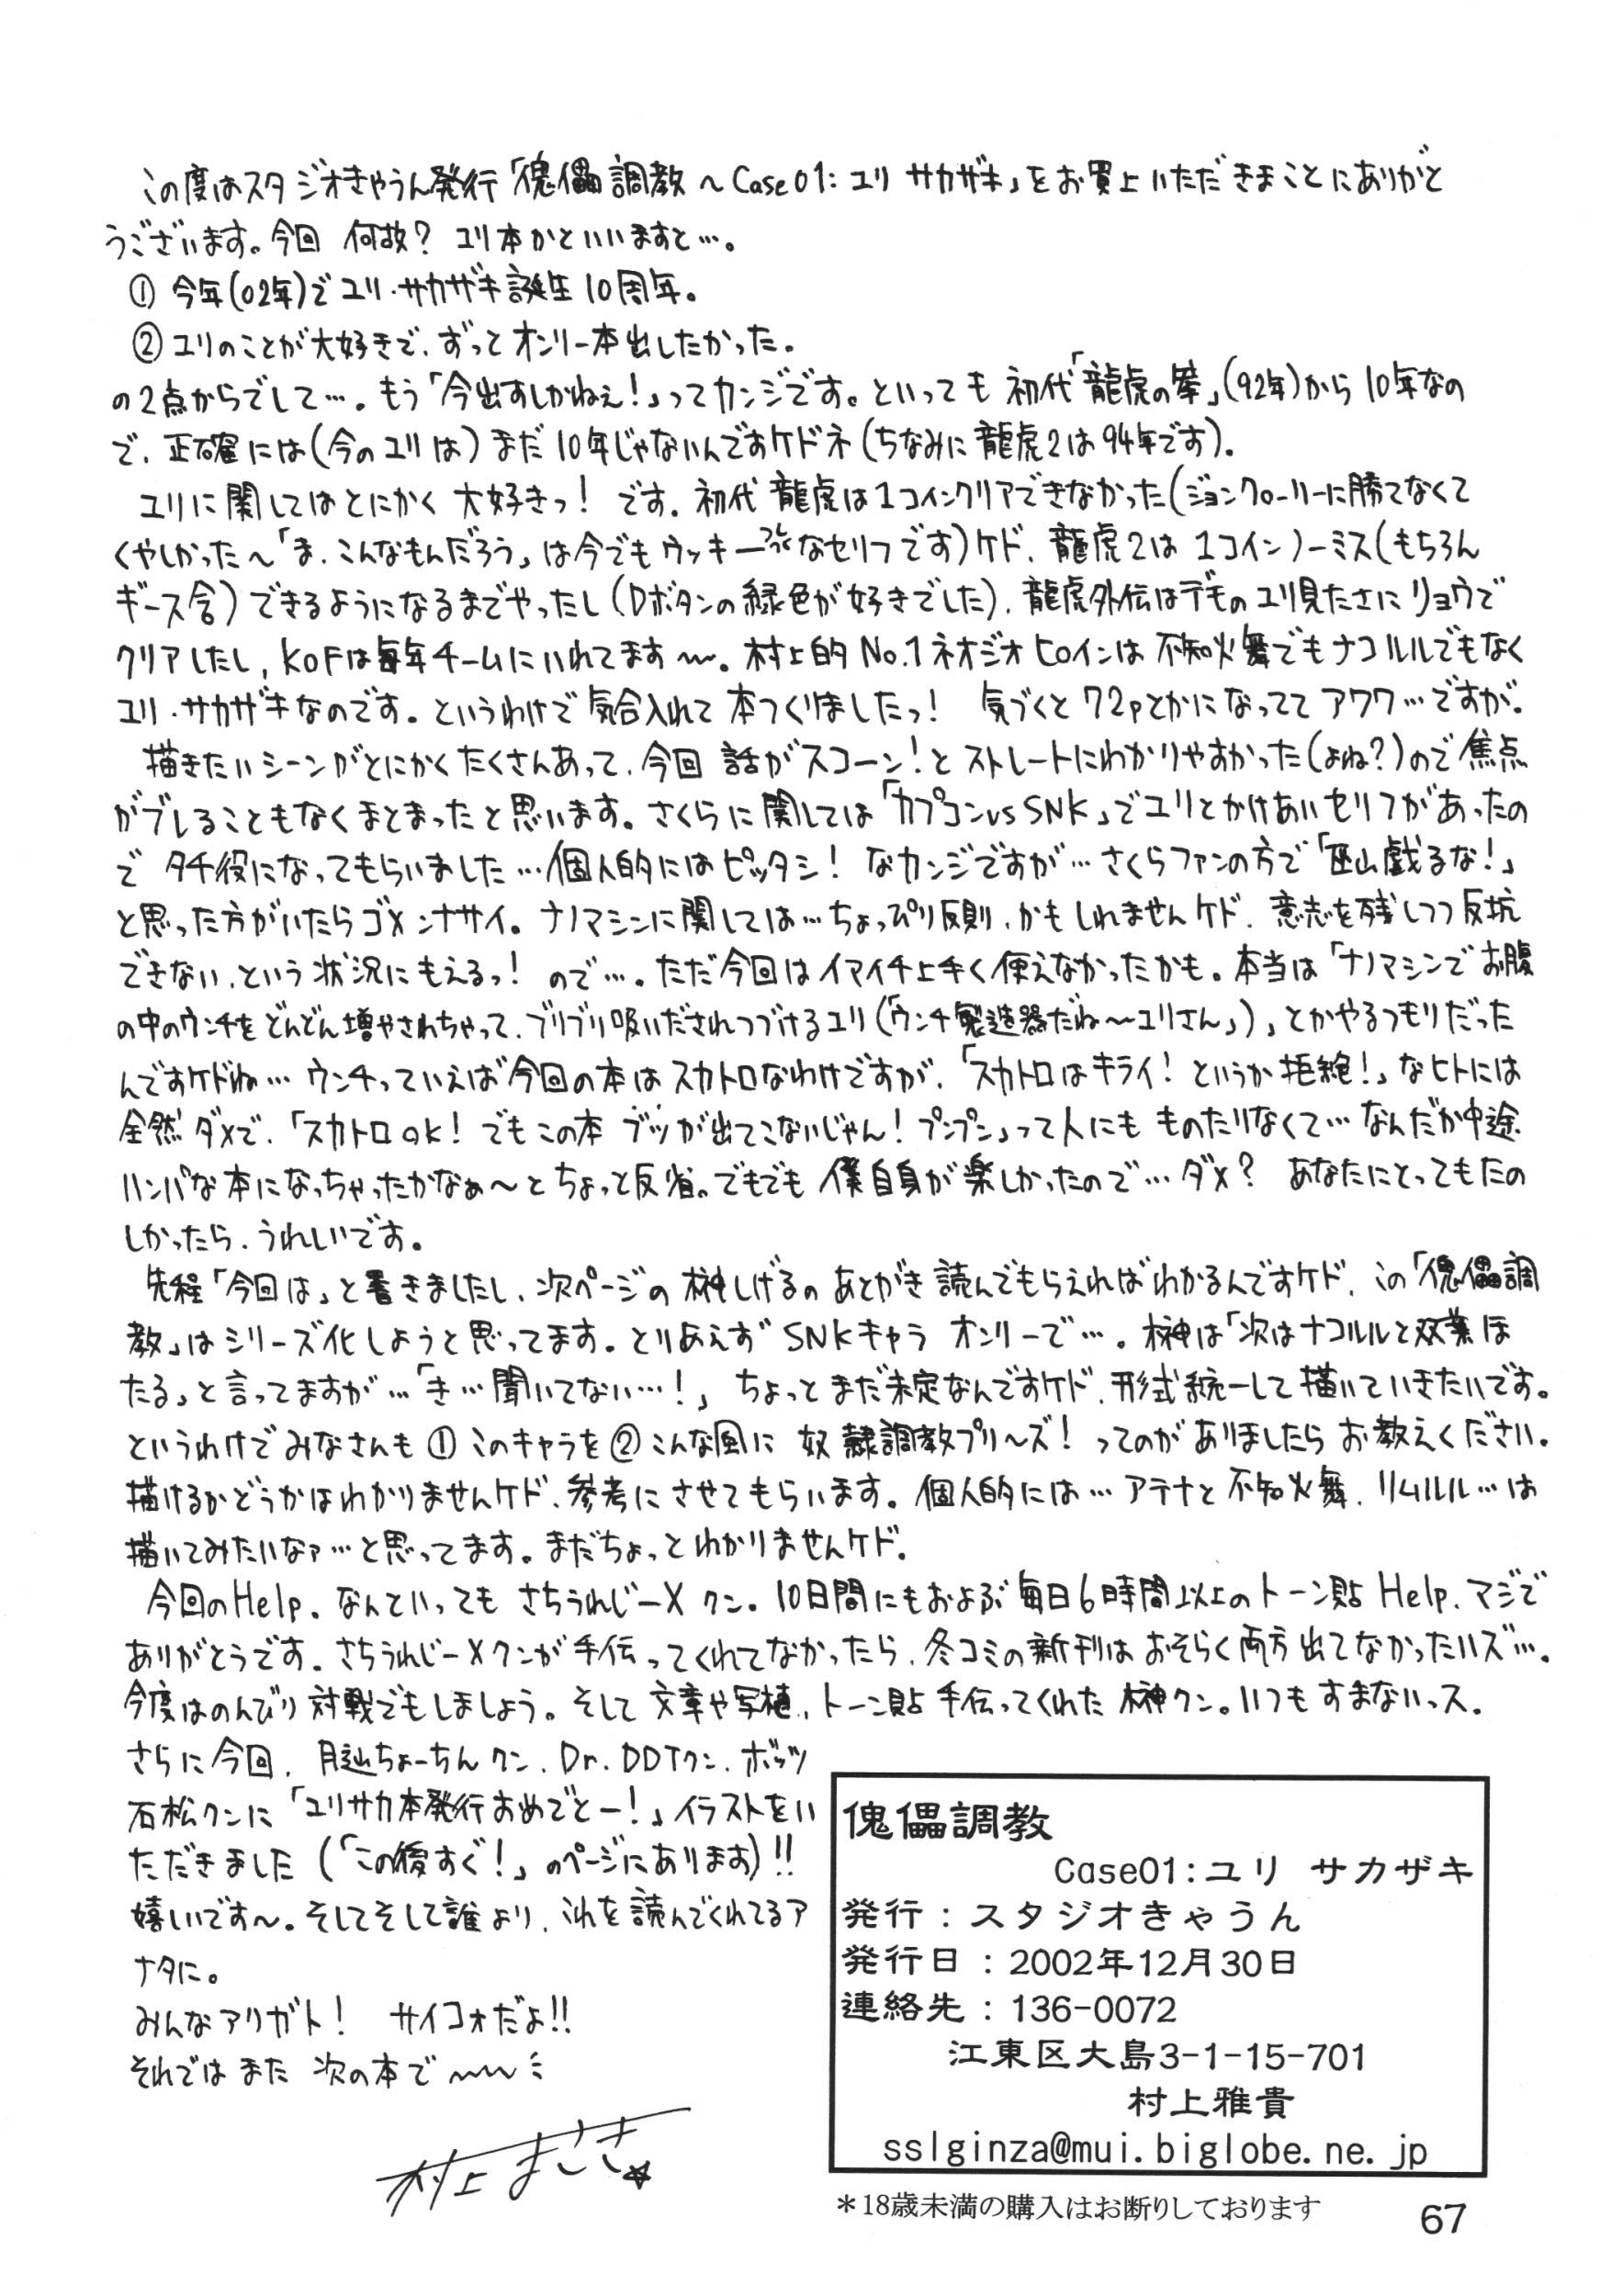 この度はスタジオきゃうん発行「傀儡調教～Case01:ユリ サカザキ」をお買上いただきまことにありがと
うございます。今回 何故? ユリ本かといいますと…。
① 今年(02年)でユリ・サカザキ誕生10周年。
② ユリのことが大好きで、ずっとオンリー本出したかった。
の2点からでして…。もう「今出すしかねぇ!」ってカンジです。といっても 初代「龍虎の拳」(92年)から10年なの
で、正確には(今のユリは)まだ10年じゃないんですケドネ(ちなみに龍虎2は94年です)。
ユリに関してはとにかく 大好きっ! です。初代 龍虎は1コインクリアできなかった(ジョンクローリーに勝てなくて
くやしかった～「ま、こんなもんだろう」は今でもウッキーなセリフです)ケド、龍虎2は 1コインノーミス(もちろん
ギース含)できるようになるまでやったし(Dボタンの緑色が好きでした)、龍虎外伝はデモのユリ見たさにリョウで
クリアしたし、KOFは毎年チームにいれてます～。村上的No.1ネオジオヒロインは 不知火舞でもナコルルでもなく
ユリ・サカザキなのです。というわけで気合入れて 本つくりましたっ! 気づくと72pとかになっててアワワ…ですが。
描きたいシーンがとにかくたくさんあって、今回 話がスコーン!とストレートにわかりやすかった(よね?)ので焦点
がブレることもなくまとまったと思います。さくらに関しては「カプコンvsSNK」でユリとかけあいセリフがあったの
で タチ役になってもらいました…個人的にはピッタシ! なカンジですが…さくらファンの方で「巫山戯るな!」
と思った方がいたらゴメンナサイ。ナノマシンに関しては…ちょっぴり反則、かもしれませんケド、意志を残しつつ反抗
できない、という状況にもえるっ! ので…。ただ今回はイマイチ上手く使えなかったかも。本当は「ナノマシンでお腹
の中のウンチをどんどん増やされちゃって、ブリブリ吸いだされつづけるユリ(「ウンチ製造器だね～ユリさん」)」とかやるつもりだった
んですケドね…ウンチっていえば今回の本はスカトロなわけですが、「スカトロはキライ! というか拒絶!」なヒトには
全然ダメで、「スカトロok! でもこの本 ブツが出てこないじゃん! プンプン」って人にも ものたりなくて…なんだか中途
ハンパな本になっちゃったかなぁ～とちょっと反省。でもでも 僕自身が楽しかったので…ダメ? あなたにとってもたの
しかったら、うれしいです。
先程「今回は」と書きましたし、次ページの榊しげるのあとがき読んでもらえればわかるんですケド、この「傀儡調
教」はシリーズ化しようと思ってます。とりあえずSNKキャラ オンリーで…。榊は「次はナコルルと双葉ほ
たる」と言ってますが…「き…聞いてない…!」 ちょっとまだ未定なんですケド、形式統一して描いていきたいです。
というわけでみなさんも①このキャラを②こんな風に 奴隷調教プリ～ズ! ってのがありましたらお教えください。
描けるかどうかはわかりませんケド、参考にさせてもらいます。個人的には…アテナと不知火舞、リムルル…は
描いてみたいなァ…と思ってます。まだちょっとわかりませんケド。
今回のHelp。なんといっても さちうれじーXクン。10日間にもおよぶ毎日6時間以上のトーン貼Help、マジで
ありがとうです。さちうれじーXクンが手伝ってくれてなかったら、冬コミの新刊はおそらく両方出てなかったハズ…。
今度はのんびり対戦でもしましょう。そして 文章や写植、トーン貼手伝ってくれた 榊クン。いつもすまないっス。
さらに今回、月辺ちょーちんクン、Dr.DDTクン、ボッツ
石松クンに「ユリサカ本発行おめでとー!」イラストをい
ただきました(「この後すぐ!」のページにあります)!!
嬉しいです～。そしてそして誰より、これを読んでくれてるア
ナタに。
みんなアリガト! サイコォだよ!!
それではまた 次の本で～
村上まさき☆
傀儡調教
Case01:ユリ サカザキ
発行:スタジオきゃうん
発行日:2002年12月30日
連絡先:136-0072
江東区大島3-1-15-701
村上雅貴
sslginza@mui.biglobe.ne.jp
＊18歳未満の購入はお断りしております
67